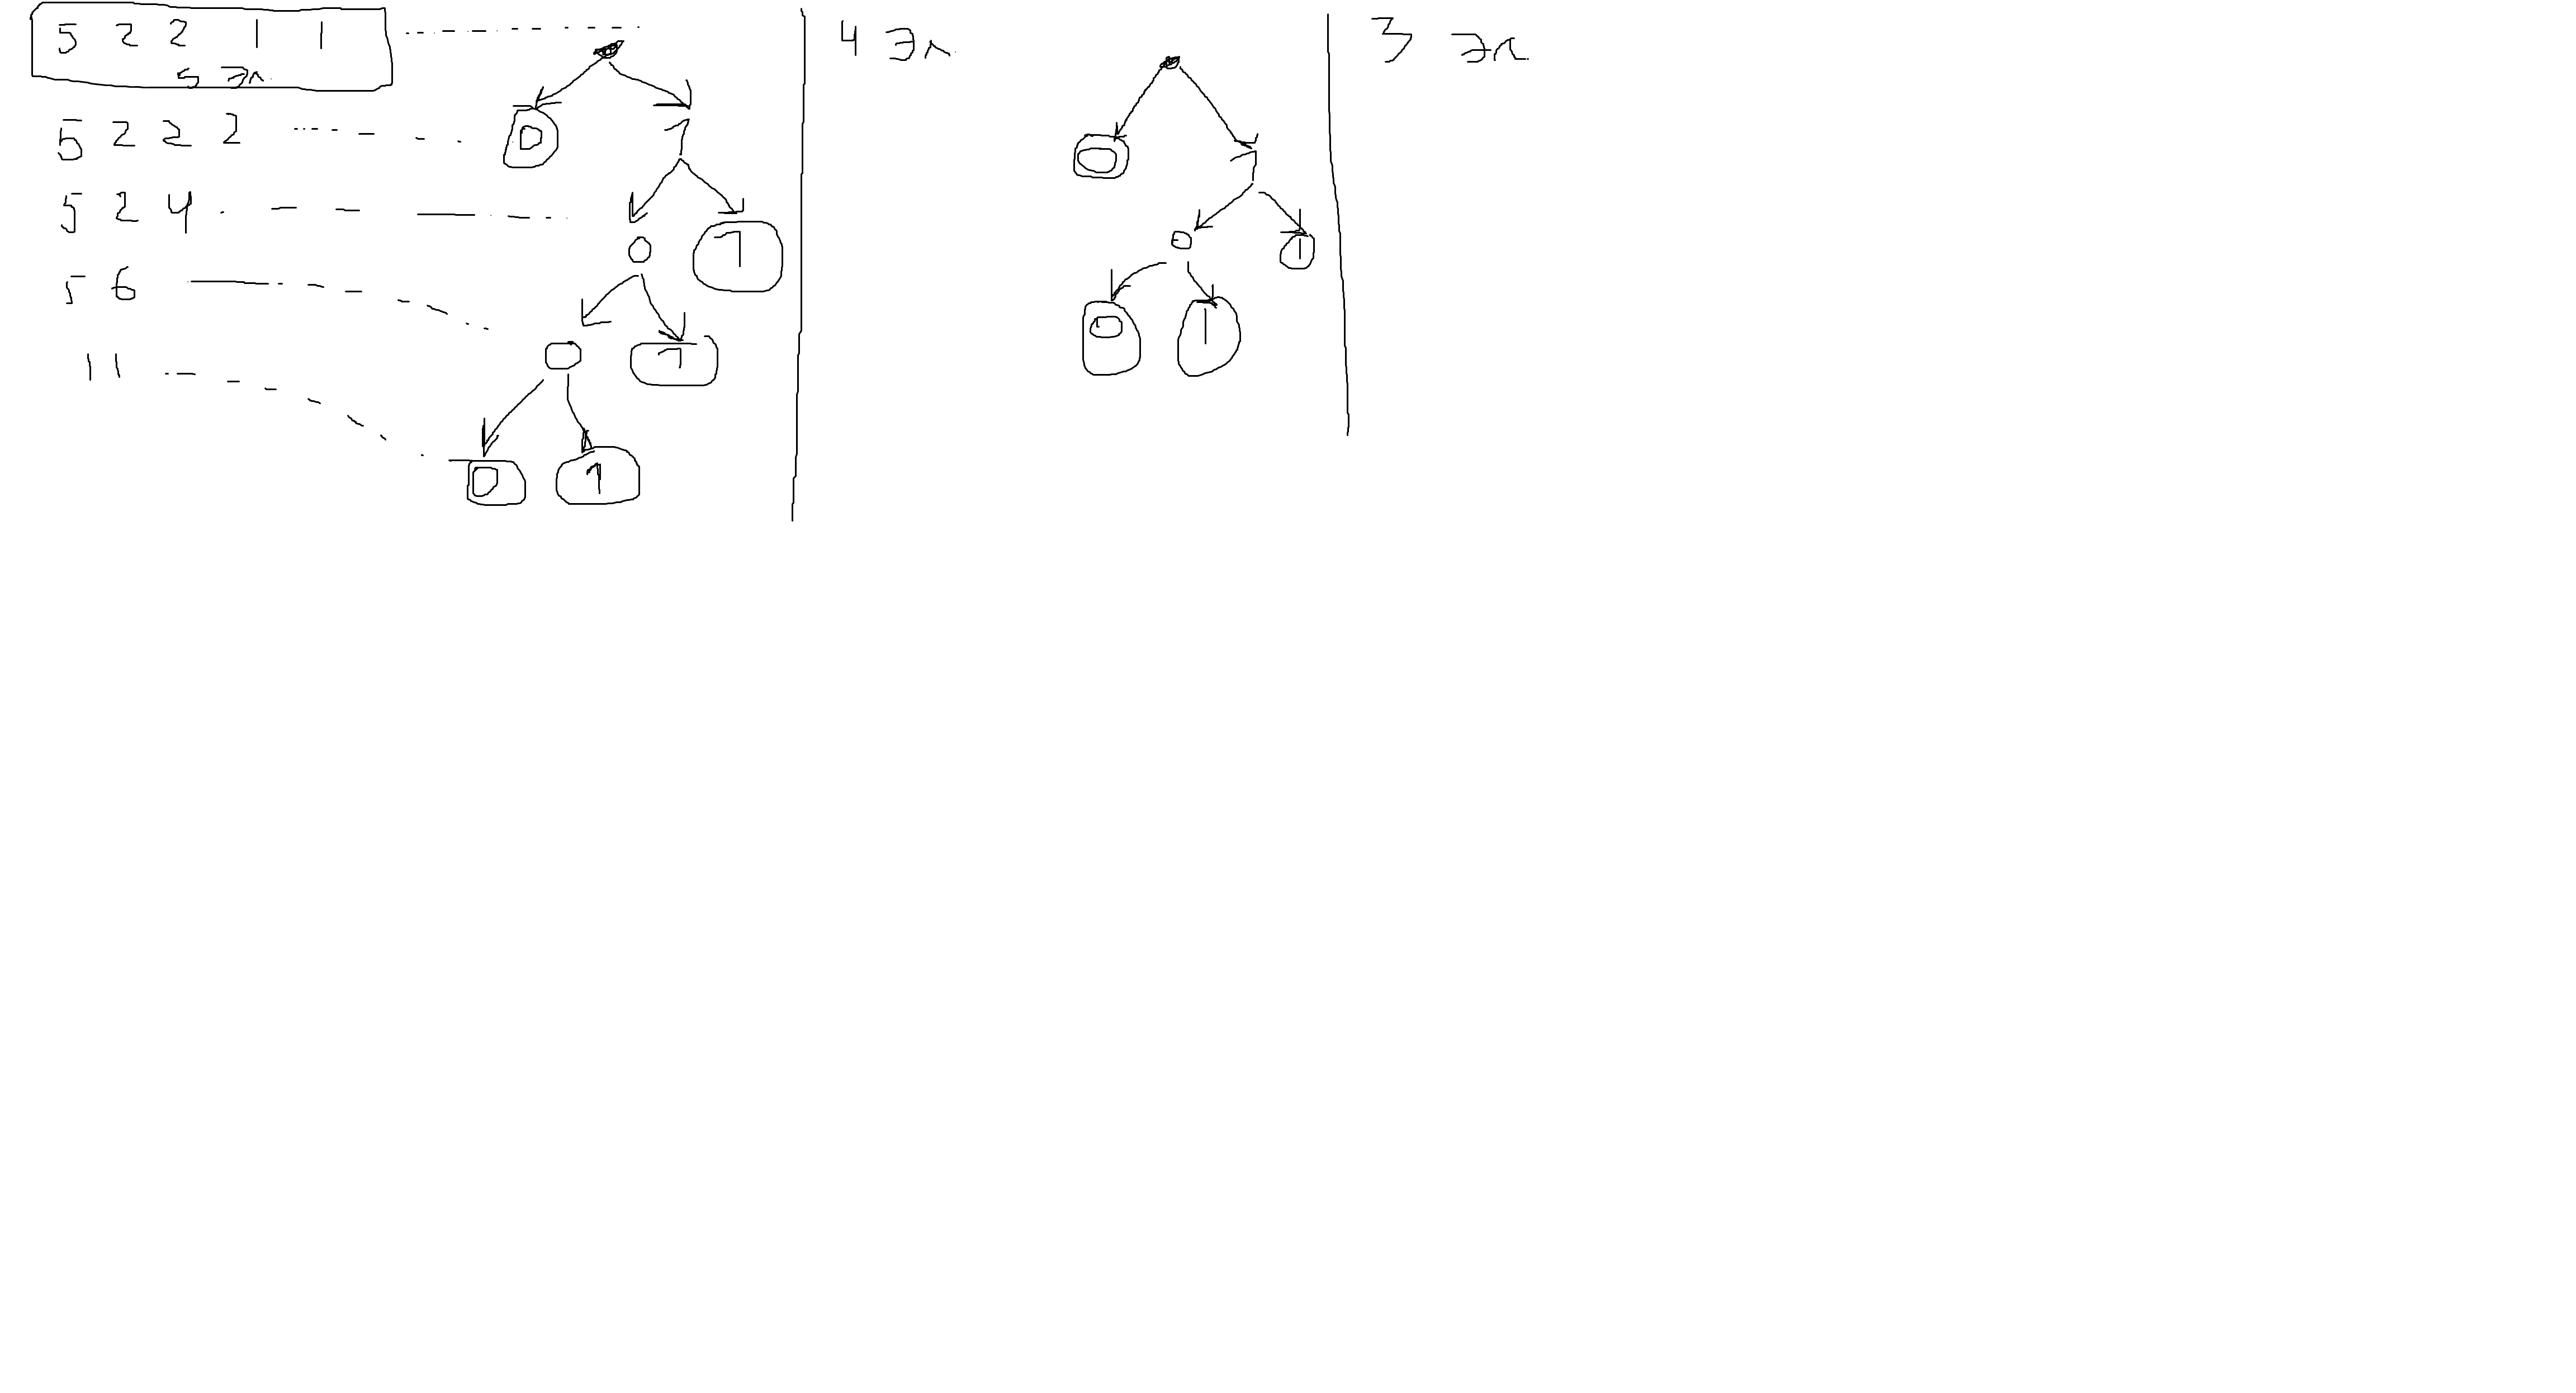 5 2 2 1 1
5 эл.
5 2 2 2
5 2 4
5 6
11
0
1
0 1
0 1
0 1
4 эл.
0
1
0 1
0 1
3 эл.